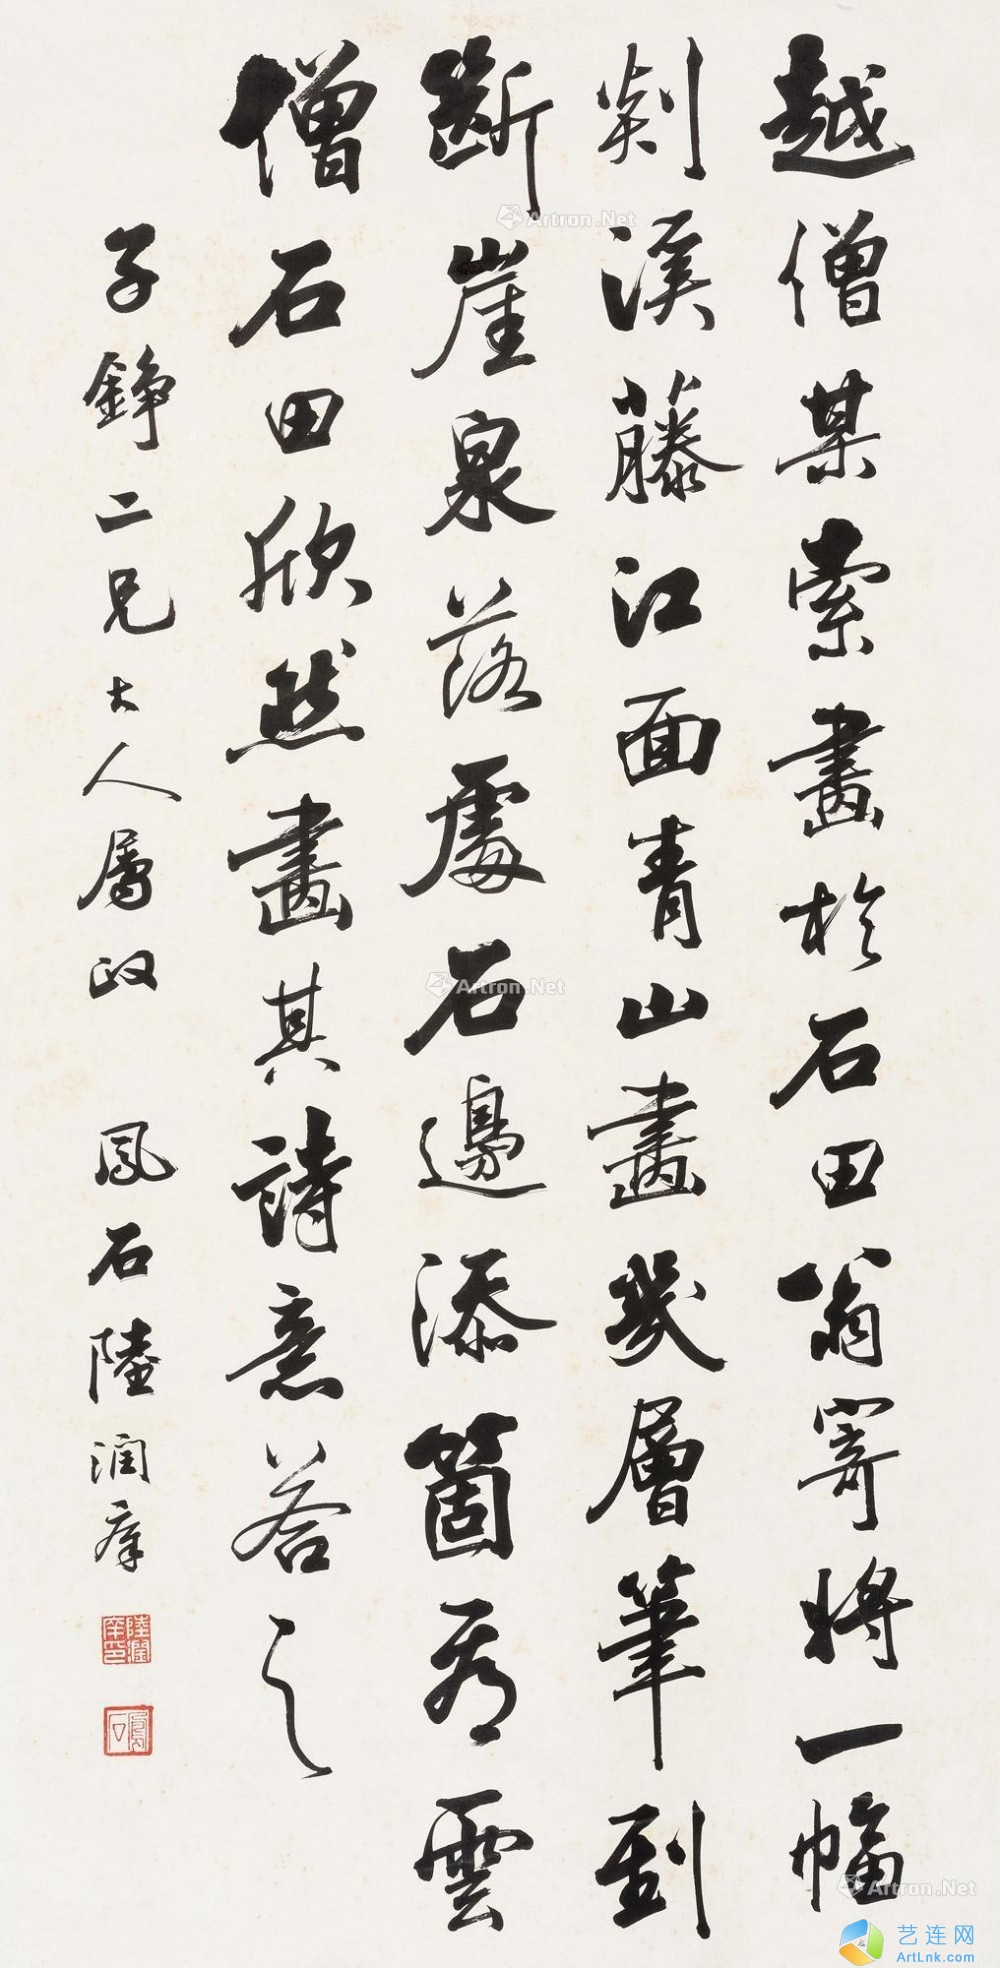 越僧某索畫於石田翁寄將一幅
剡溪藤江面青山畫幾層筆到
斷崖泉落處石邊添箇看雲
僧石田欣然畫其詩意答之
子錚二兄大人屬政 鳳石陸潤庠
陸潤庠印
鳳石
Artron.Net
Artron.Net
Artron.Net
艺连网
ArtLnk.com